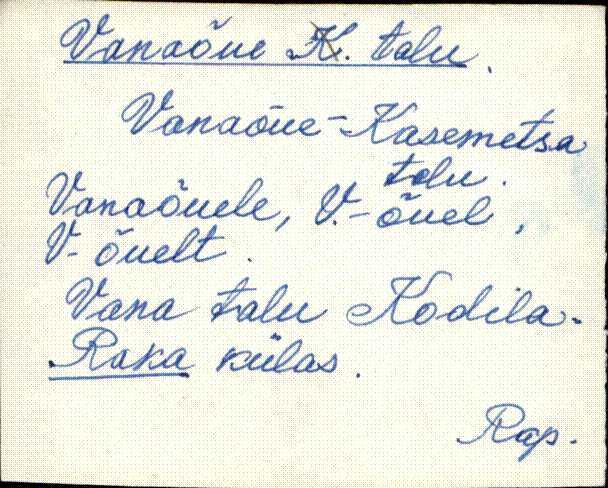 Vanaõue K. talu.
Vanaõue-Kasemetsa
talu.
Vanaõuele, V.-õuel,
V-õuelt.
Vana talu Kodila-
Raka külas.
Rap.